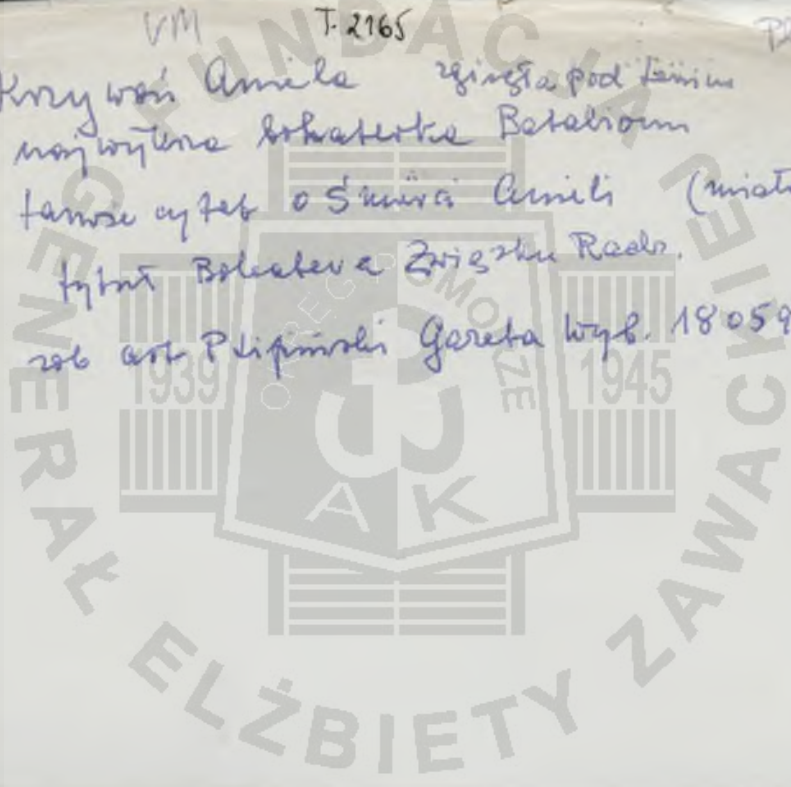 VM T-2165
Krzywoń Aniela zginęła pod Lenino
największa bohaterka Batalionu
tamże cytat o śmierci Anieli (miała
tytuł Bohatera Związku Radz.
zob art. P Lipiński Gazeta Wyb. 18 05 9
FUNDACJA GENERAŁ ELŻBIETY ZAWACKIEJ
OKRĘG POMORZE
1939 1945
AK